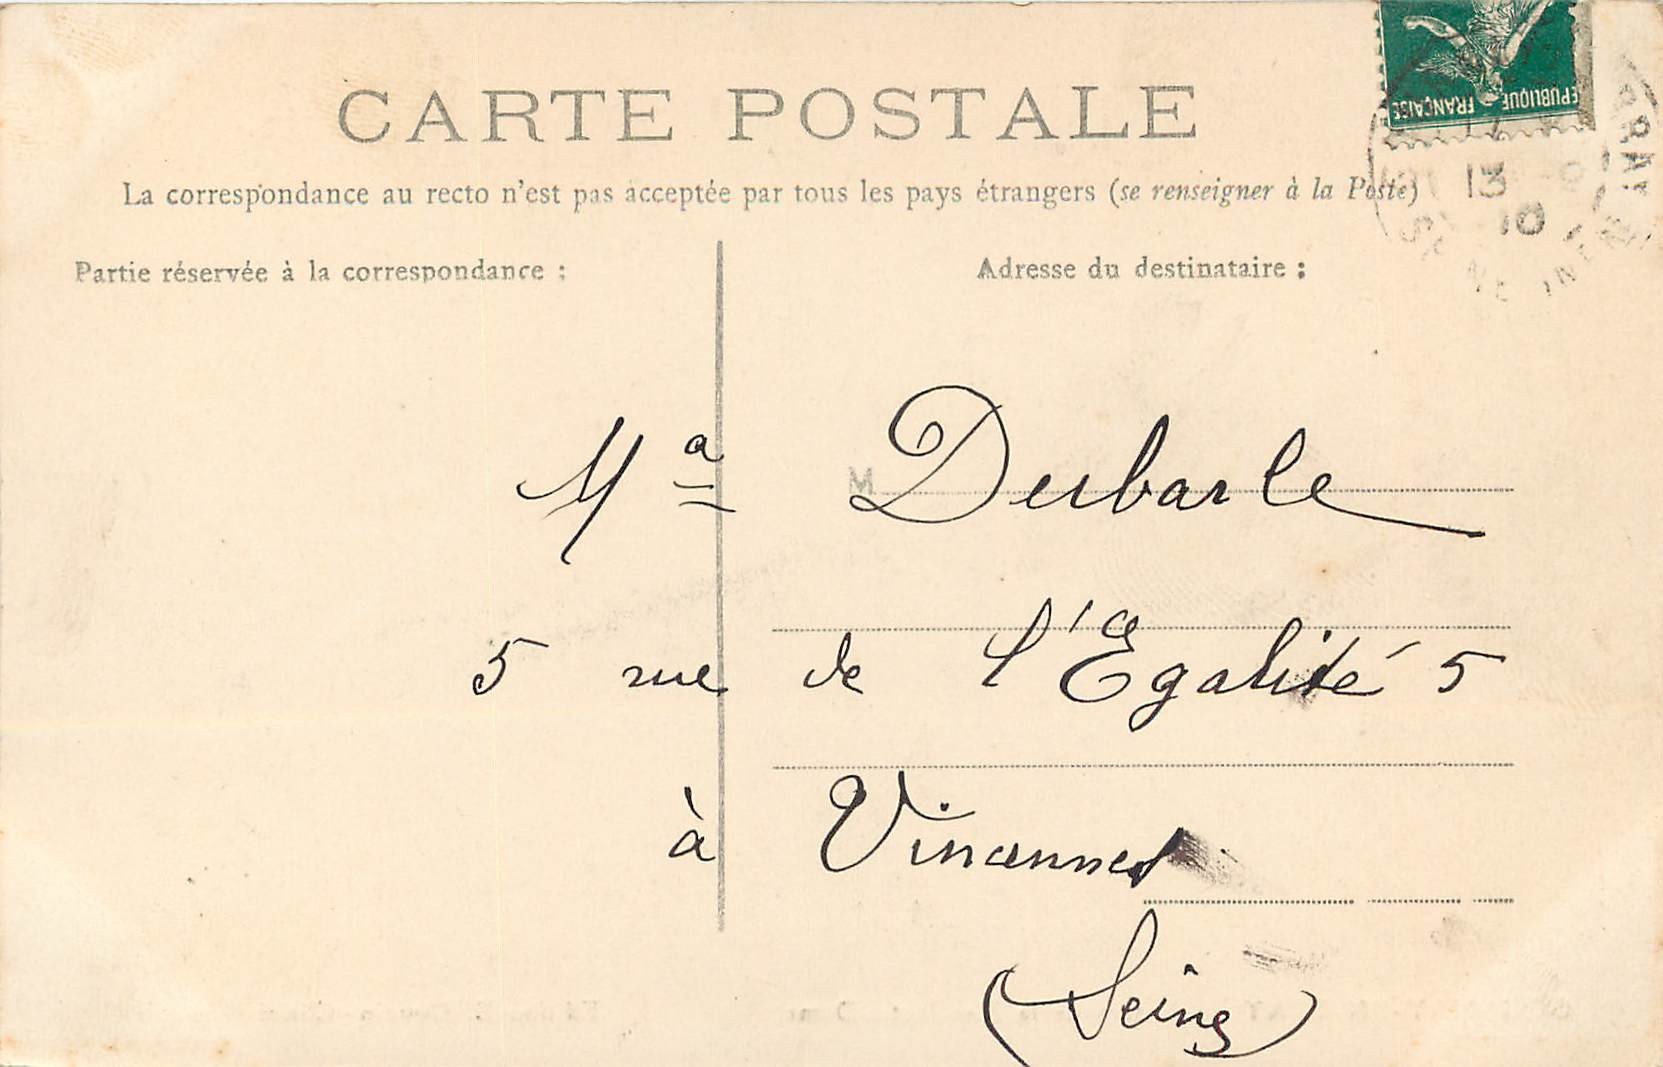 CARTE POSTALE
La correspondance au recto n'est pas acceptée par tous les pays étrangers (se renseigner à la Poste)
Partie réservée à la correspondance :
Adresse du destinataire :
RÉPUBLIQUE FRANÇAISE
13
10
M Dubarle
5 rue de l'Égalité 5
à Vincennes
(Seine)